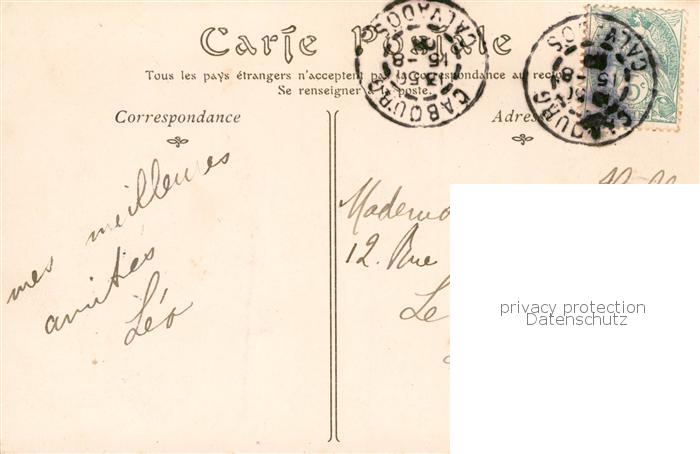 Carte Postale
Tous les pays étrangers n'acceptent pas la correspondance au recto
Se renseigner à la poste.
Correspondance
Adresse
CABOURG
CALVADOS
13 50
15 - 8
CABOURG
CALVADOS
mes meilleures
amitiés
Léo
12 Rue
Le
privacy protection
Datenschutz